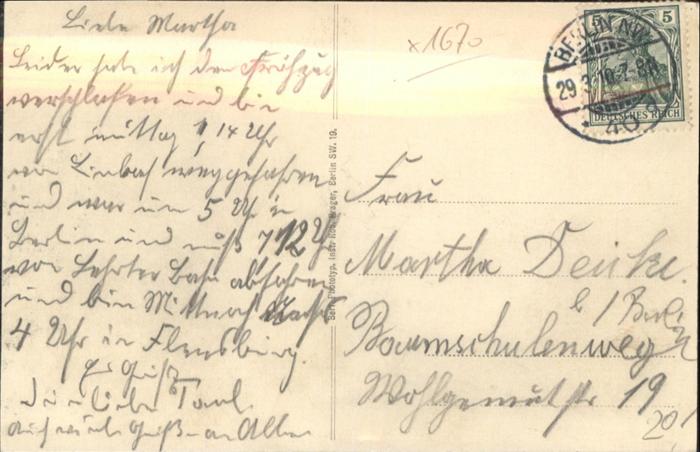 Liebe Martha
Leider habe ich den Frühzug
verschlafen und bin
erst mittag 1,14 Uhr
von weggefahren
und war um 5 Uhr in
Berlin und muß 7 12 Uhr
von Lehrter Bahn abfahren
und bin Mitternacht
4 Uhr in Flensburg.
Es grüßt
Dein lieber Paul
auch viele Grüße an Alle
x1670
BERLIN N.W.
29.3.10.7-8N.
40
5 5
DEUTSCHES REICH
Berlin SW. 19.
Frau
Martha
b/Berlin
Baumschulenweg
Wohlgemutstr 19
20